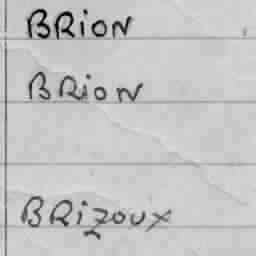 BRiON
BRiON
BRizoux